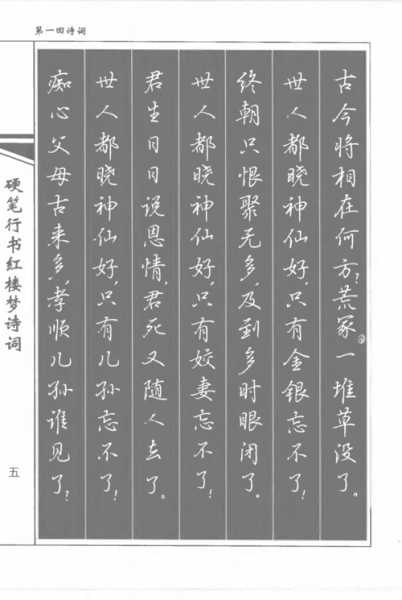 第一回诗词
古今将相在何方?荒冢①一堆草没了。
世人都晓神仙好,只有金银忘不了!
终朝只恨聚无多,及到多时眼闭了。
世人都晓神仙好,只有姣妻忘不了!
君生日日说恩情,君死又随人去了。
世人都晓神仙好,只有儿孙忘不了!
痴心父母古来多,孝顺儿孙谁见了?
硬笔行书红楼梦诗词
五